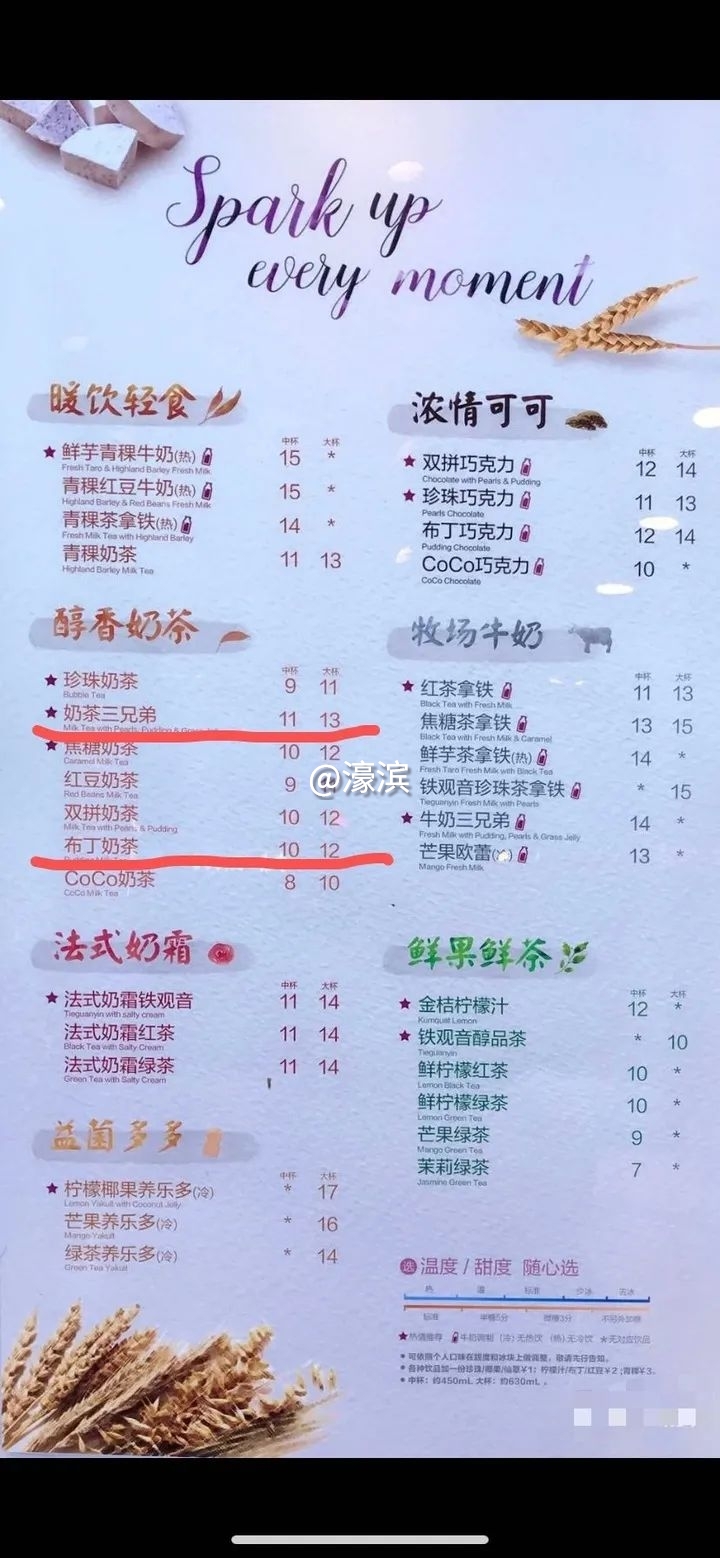 Spark up
every moment
暖饮轻食
中杯 大杯
★ 鲜芋青稞牛奶(热) 15 *
Fresh Taro & Highland Barley Fresh Milk
青稞红豆牛奶(热) 15 *
Highland Barley & Red Beans Fresh Milk
青稞茶拿铁(热) 14 *
Fresh Milk Tea with Highland Barley
青稞奶茶 11 13
Highland Barley Milk Tea
醇香奶茶
中杯 大杯
★ 珍珠奶茶 9 11
Bubble Tea
★ 奶茶三兄弟 11 13
Milk Tea with Pearls, Pudding & Grass
★ 焦糖奶茶 10 12
Caramel Milk Tea
红豆奶茶 9
Red Beans Milk Tea
双拼奶茶 10 12
Milk Tea with Pearls & Pudding
布丁奶茶 10 12
CoCo奶茶 8 10
CoCo Milk Tea
@濠滨
法式奶霜
中杯 大杯
★ 法式奶霜铁观音 11 14
Tieguanyin with salty cream
法式奶霜红茶 11 14
Black Tea with Salty Cream
法式奶霜绿茶 11 14
Green Tea with Salty Cream
益菌多多
中杯 大杯
★ 柠檬椰果养乐多(冷) * 17
Lemon Yakult with Coconut Jelly
芒果养乐多(冷) * 16
Mango Yakult
绿茶养乐多(冷) * 14
Green Tea Yakult
浓情可可
中杯 大杯
★ 双拼巧克力 12 14
Chocolate with Pearls & Pudding
★ 珍珠巧克力 11 13
Pearls Chocolate
布丁巧克力 12 14
Pudding Chocolate
CoCo巧克力 10 *
CoCo Chocolate
牧场牛奶
中杯 大杯
★ 红茶拿铁 11 13
Black Tea with Fresh Milk
焦糖茶拿铁 13 15
Black Tea with Fresh Milk & Caramel
鲜芋茶拿铁(热) 14 *
Fresh Taro Fresh Milk with Black Tea
铁观音珍珠茶拿铁 * 15
Tieguanyin Fresh Milk with Pearls
★ 牛奶三兄弟 14 *
Fresh Milk with Pudding, Pearls & Grass Jelly
芒果欧蕾(冷) 13 *
Mango Fresh Milk
鲜果鲜茶
中杯 大杯
★ 金桔柠檬汁 12 *
Kumquat Lemon
★ 铁观音醇品茶 * 10
Tieguanyin
鲜柠檬红茶 10 *
Lemon Black Tea
鲜柠檬绿茶 10 *
Lemon Green Tea
芒果绿茶 9 *
Mango Green Tea
茉莉绿茶 7 *
Jasmine Green Tea
选 温度 / 甜度 随心选
热 温 标准 少冰 去冰
标准 半糖5分 微糖3分 不另外加糖
★热情推荐 牛奶调制 (冷)无热饮 (热)无冷饮 *无对应饮品
• 可依照个人口味在甜度和冰块上做调整，敬请先行告知。
• 各种饮品加一份珍珠/椰果/仙草¥1；柠檬汁/布丁/红豆¥2；青稞¥3。
• 中杯：约450mL 大杯：约630mL 。